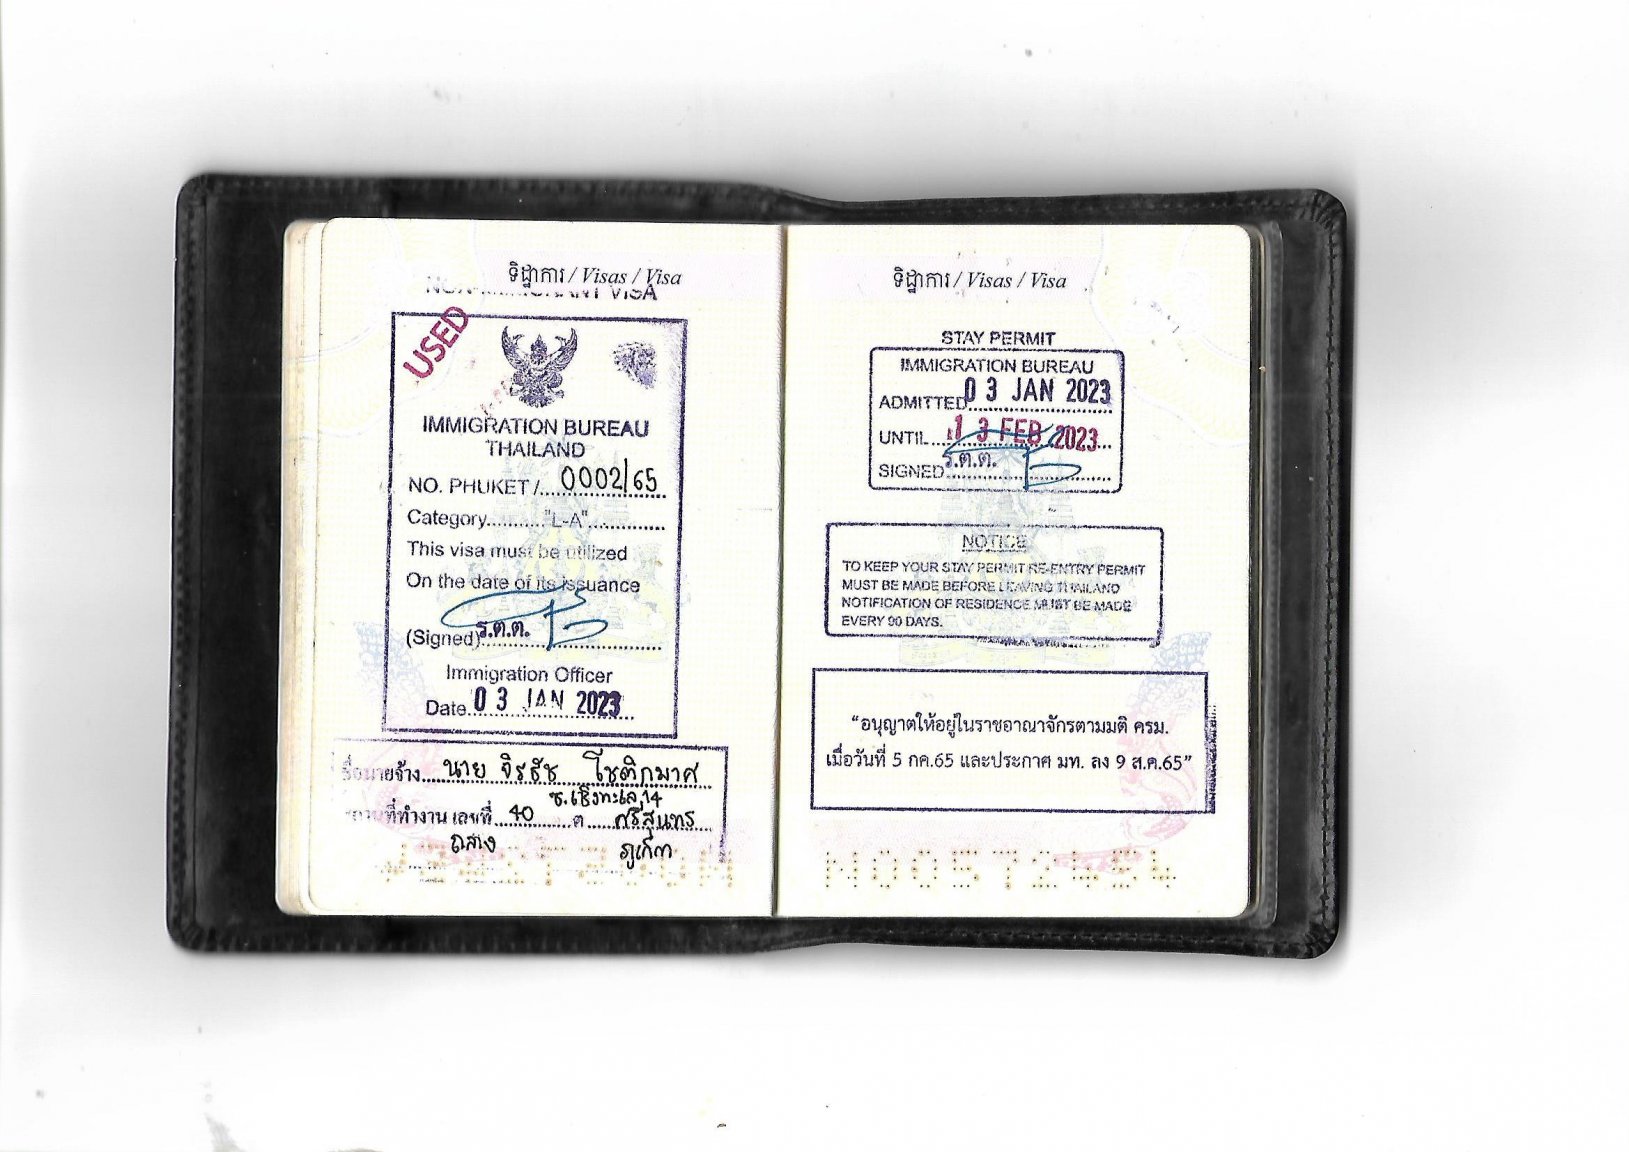 ទិដ្ឋាការ / Visas / Visa
NON-IMMIGRANT VISA
USED
IMMIGRATION BUREAU
THAILAND
NO. PHUKET /.... 0002/65
Category..........."L-A".............
This visa must be utilized
On the date of its issuance
(Signed) ร.ต.ต.
Immigration Officer
Date 03 JAN 2023
ชื่อนายจ้าง... นาย จิรธัช โชติกมาศ
ซ.เชิงทะเล 14
สถานที่ทำงาน เลขที่ 40 ต ศรีสุนทร
ถลาง ภูเก็ต
ទិដ្ឋាការ / Visas / Visa
STAY PERMIT
IMMIGRATION BUREAU
ADMITTED 03 JAN 2023
UNTIL 13 FEB 2023
SIGNED ร.ต.ต.
NOTICE
TO KEEP YOUR STAY PERMIT RE-ENTRY PERMIT
MUST BE MADE BEFORE LEAVING THAILAND
NOTIFICATION OF RESIDENCE MUST BE MADE
EVERY 90 DAYS.
“อนุญาตให้อยู่ในราชอาณาจักรตามมติ ครม.
เมื่อวันที่ 5 กค.65 และประกาศ มท. ลง 9 ส.ค.65”
N00572454